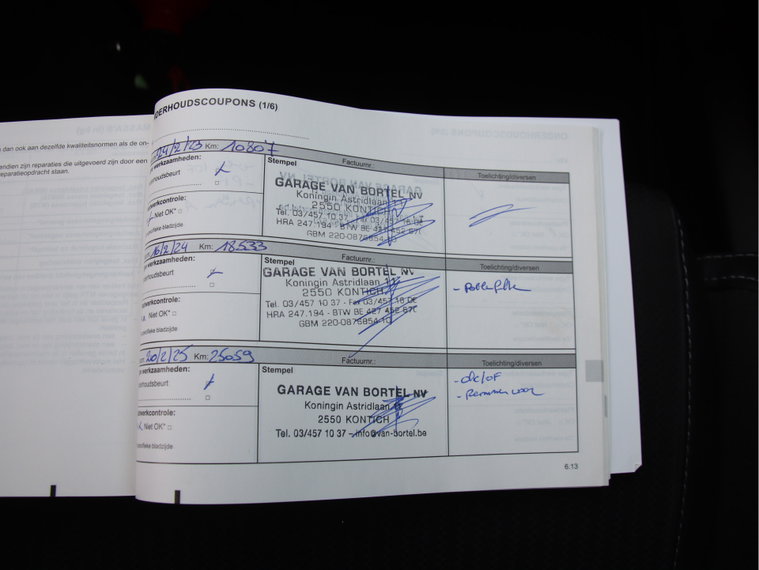 DERHOUDSCOUPONS (1/6)
dan ook aan dezelfde kwaliteitsnormen als de on-
endien zijn reparaties die uitgevoerd zijn door een
eparatieopdracht staan.
24/2/23 Km: 10807
werkzaamheden:
erhoudsbeurt
Stempel Factuurnr.:
GARAGE VAN BORTEL NV
Koningin Astridlaan
2550 KONTICH
Tel. 03/457 10 37 - Fax 03/457
HRA 247.194 - BTW BE 427 452 67
GBM 220-0876854-10
Toelichting/diversen
werkcontrole:
Niet OK*
specifieke bladzijde
16/2/24 Km: 18533
werkzaamheden:
houdsbeurt
Stempel Factuurnr.:
GARAGE VAN BORTEL NV
Koningin Astridlaan
2550 KONTICH
Tel. 03/457 10 37 - Fax 03/457
HRA 247.194 - BTW BE 427 452 67
GBM 220-0876854-10
Toelichting/diversen
erkcontrole:
Niet OK*
specifieke bladzijde
20/2/25 Km: 25059
werkzaamheden:
houdsbeurt
Stempel Factuurnr.:
GARAGE VAN BORTEL NV
Koningin Astridlaan
2550 KONTICH
Tel. 03/457 10 37 - info@van-bortel.be
Toelichting/diversen
- Remmen voor
werkcontrole:
Niet OK*
specifieke bladzijde
6.13